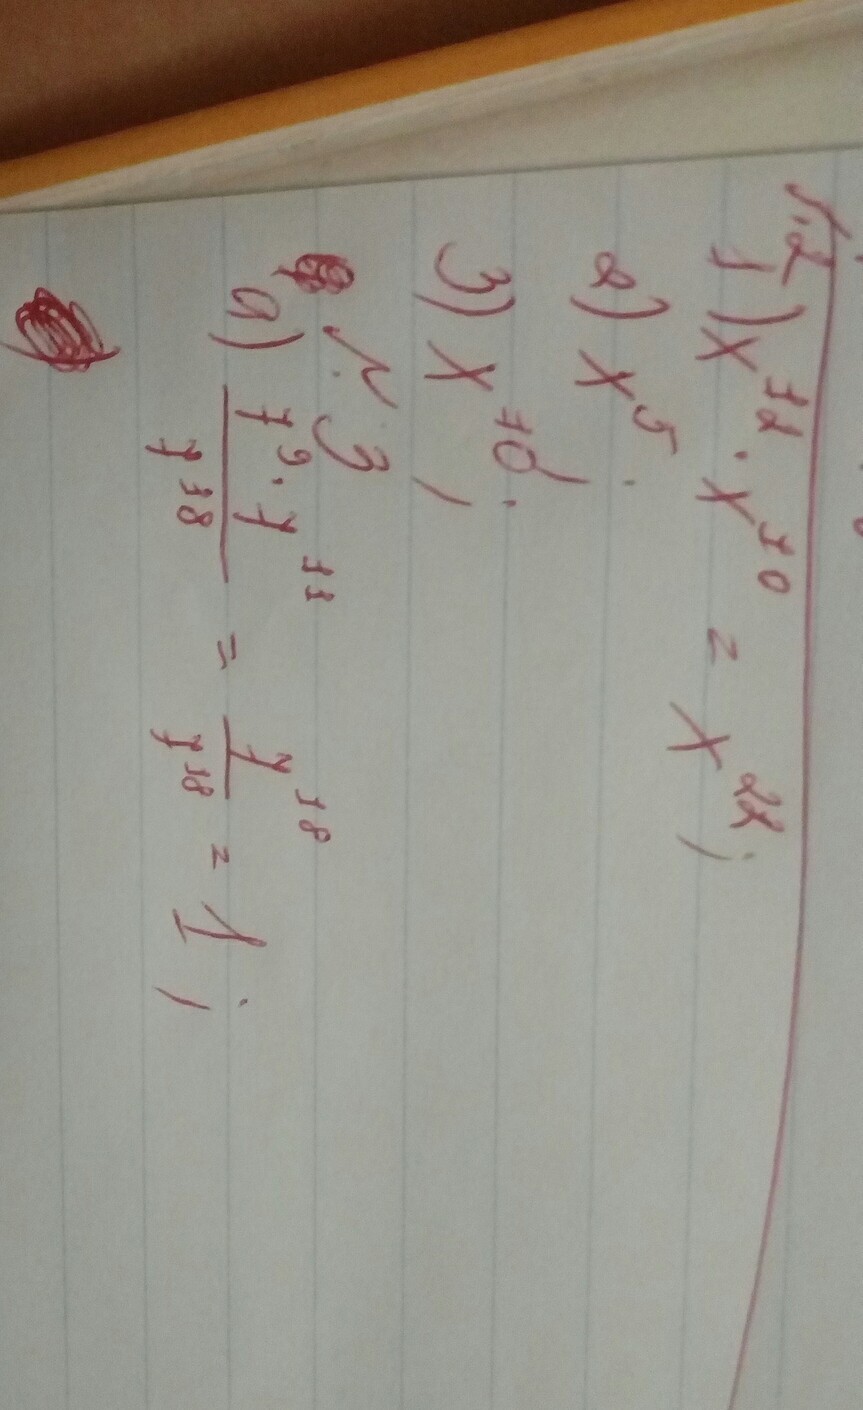 N.2
1) x¹² · x¹⁰ = x²²;
2) x⁵;
3) x¹⁰;
N.3
a) 7⁹ · 7¹¹ / 7¹⁸ = 7¹⁸ / 7¹⁸ = 1;